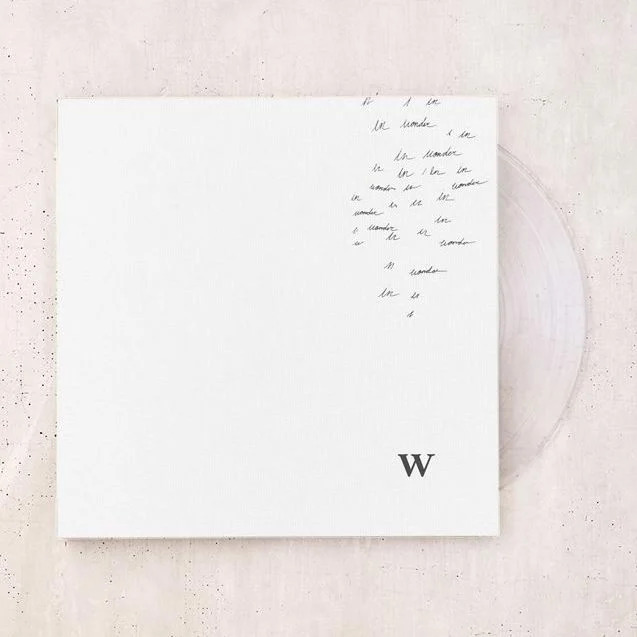 i in
in wonder
i in
in wonder
in in in
wonder in wonder
in in in in
wonder
in
wonder
in in
in wonder
in wonder
in
W